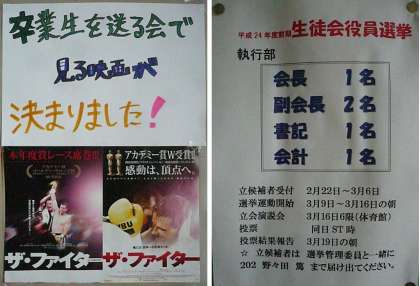 卒業生を送る会で
見る映画が
決まりました!
本年度賞レース席巻!!
アカデミー賞W受賞!!
感動は、頂点へ。
ザ・ファイター
ザ・ファイター
平成24年度前期 生徒会役員選挙
執行部
会長 1名
副会長 2名
書記 1名
会計 1名
立候補者受付 2月22日~3月6日
選挙運動開始 3月9日~3月16日の朝
立会演説会 3月16日6限(体育館)
投票 同日ST時
投票結果報告 3月19日の朝
☆ 立候補者は 選挙管理委員と一緒に
202 野々田 篤 まで届け出てください。